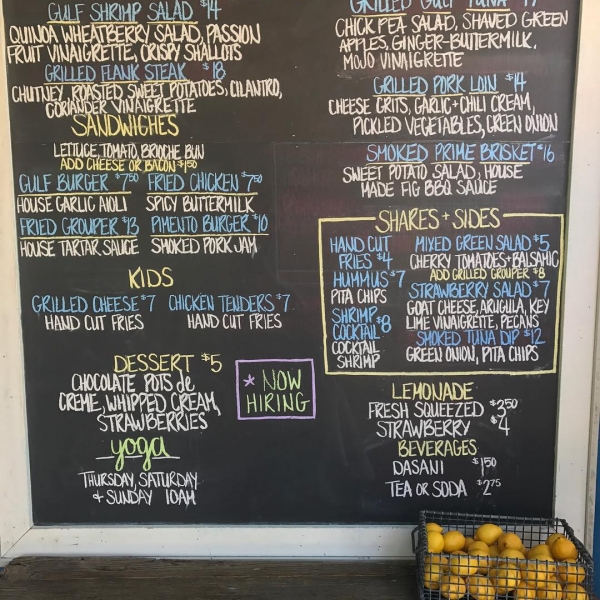 GULF SHRIMP SALAD $14
QUINOA WHEATBERRY SALAD, PASSION
FRUIT VINAIGRETTE, CRISPY SHALLOTS
GRILLED FLANK STEAK $18
CHUTNEY ROASTED SWEET POTATOES, CILANTRO,
CORIANDER VINAIGRETTE
SANDWICHES
LETTUCE, TOMATO, BRIOCHE BUN
ADD CHEESE OR BACON $1.50
GULF BURGER $7.50 FRIED CHICKEN $7.50
HOUSE GARLIC AIOLI SPICY BUTTERMILK
FRIED GROUPER $13 PIMENTO BURGER $10
HOUSE TARTAR SAUCE SMOKED PORK JAM
KIDS
GRILLED CHEESE $7 CHICKEN TENDERS $7
HAND CUT FRIES HAND CUT FRIES
DESSERT $5
CHOCOLATE POTS de
CREME, WHIPPED CREAM,
STRAWBERRIES
yoga
THURSDAY, SATURDAY
+ SUNDAY 10AM
* NOW
HIRING
GRILLED GULF TUNA
CHICK PEA SALAD, SHAVED GREEN
APPLES, GINGER-BUTTERMILK,
MOJO VINAIGRETTE
GRILLED PORK LOIN $14
CHEESE GRITS, GARLIC + CHILI CREAM,
PICKLED VEGETABLES, GREEN ONION
SMOKED PRIME BRISKET $16
SWEET POTATO SALAD, HOUSE
MADE FIG BBQ SAUCE
SHARES + SIDES
HAND CUT
FRIES $4
HUMMUS $7
PITA CHIPS
SHRIMP
COCKTAIL $8
COCKTAIL
SHRIMP
MIXED GREEN SALAD $5
CHERRY TOMATOES + BALSAMIC
ADD GRILLED GROUPER $8
STRAWBERRY SALAD $7
GOAT CHEESE, ARUGULA, KEY
LIME VINAIGRETTE, PECANS
SMOKED TUNA DIP $12
GREEN ONION, PITA CHIPS
LEMONADE
FRESH SQUEEZED $3.50
STRAWBERRY $4
BEVERAGES
DASANI $1.50
TEA OR SODA $2.75